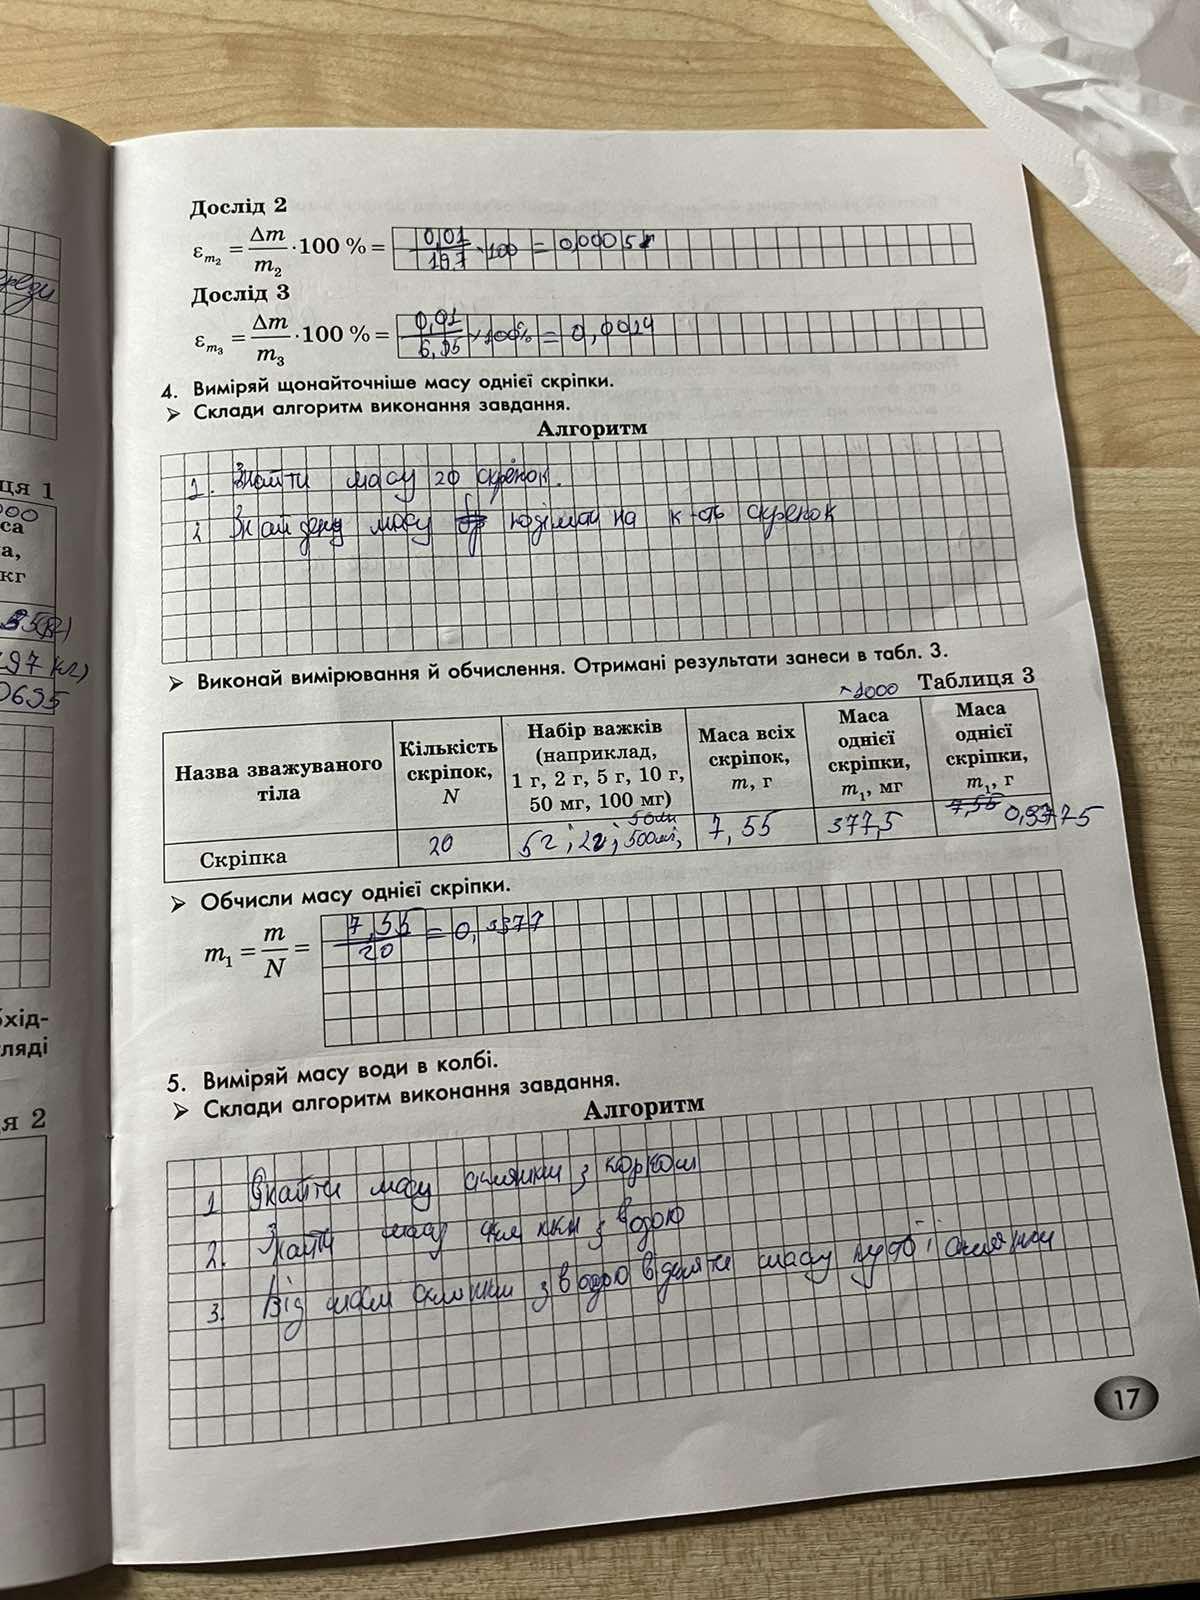 Дослід 2
ε m₂ = Δm / m₂ · 100 % = 0,01 / 19.7 · 100 = 0,0005
Дослід 3
ε m₃ = Δm / m₃ · 100 % = 0,01 / 6,95 × 100% = 0,0014
4. Виміряй щонайточніше масу однієї скріпки.
➢ Склади алгоритм виконання завдання.
Алгоритм
1. Знайти масу 20 скрепок.
2 Знайдену масу поділити на к-сть скрепок
➢ Виконай вимірювання й обчислення. Отримані результати занеси в табл. 3.
1000 Таблиця 3
Назва зважуваного тіла
Кількість скріпок, N
Набір важків (наприклад, 1 г, 2 г, 5 г, 10 г, 50 мг, 100 мг)
Маса всіх скріпок, m, г
Маса однієї скріпки, m₁, мг
Маса однієї скріпки, m₁, г
Скріпка 20 5г; 2г; 500мг, 50мг 7,55 377,5 7,55
➢ Обчисли масу однієї скріпки.
m₁ = m / N = 7,55 / 20 = 0,3377
5. Виміряй масу води в колбі.
➢ Склади алгоритм виконання завдання.
Алгоритм
1 Знайти масу склянки з корком
2. Знайти масу склянки з водою
3. Від маси склянки з водою відняти масу пустої склянки
17
ця 1
000
са
а,
кг
97 кг)
0695
бхід-
гляді
я 2